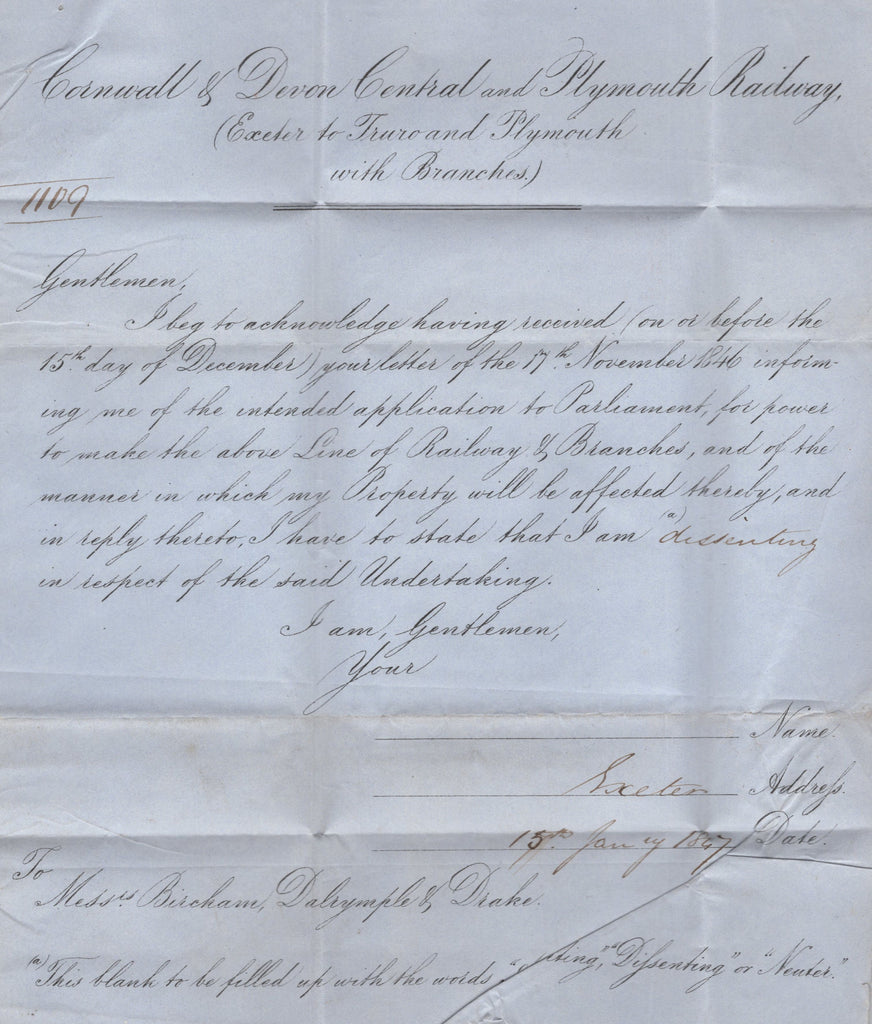 Cornwall & Devon Central and Plymouth Railway,
(Exeter to Truro and Plymouth
with Branches.)
1109
Gentlemen,
I beg to acknowledge having received (on or before the
15th. day of December) your letter of the 17th. November 1846 inform-
ing me of the intended application to Parliament, for power
to make the above Line of Railway & Branches, and of the
manner in which my Property will be affected thereby, and
in reply thereto, I have to state that I am (a) dissenting
in respect of the said Undertaking.
I am, Gentlemen,
Your
Name.
Exeter Address.
15th Jany 1847 Date.
To
Messrs Bircham, Dalrymple & Drake.
(a) This blank to be filled up with the words, " ting," "Dissenting" or "Neuter."